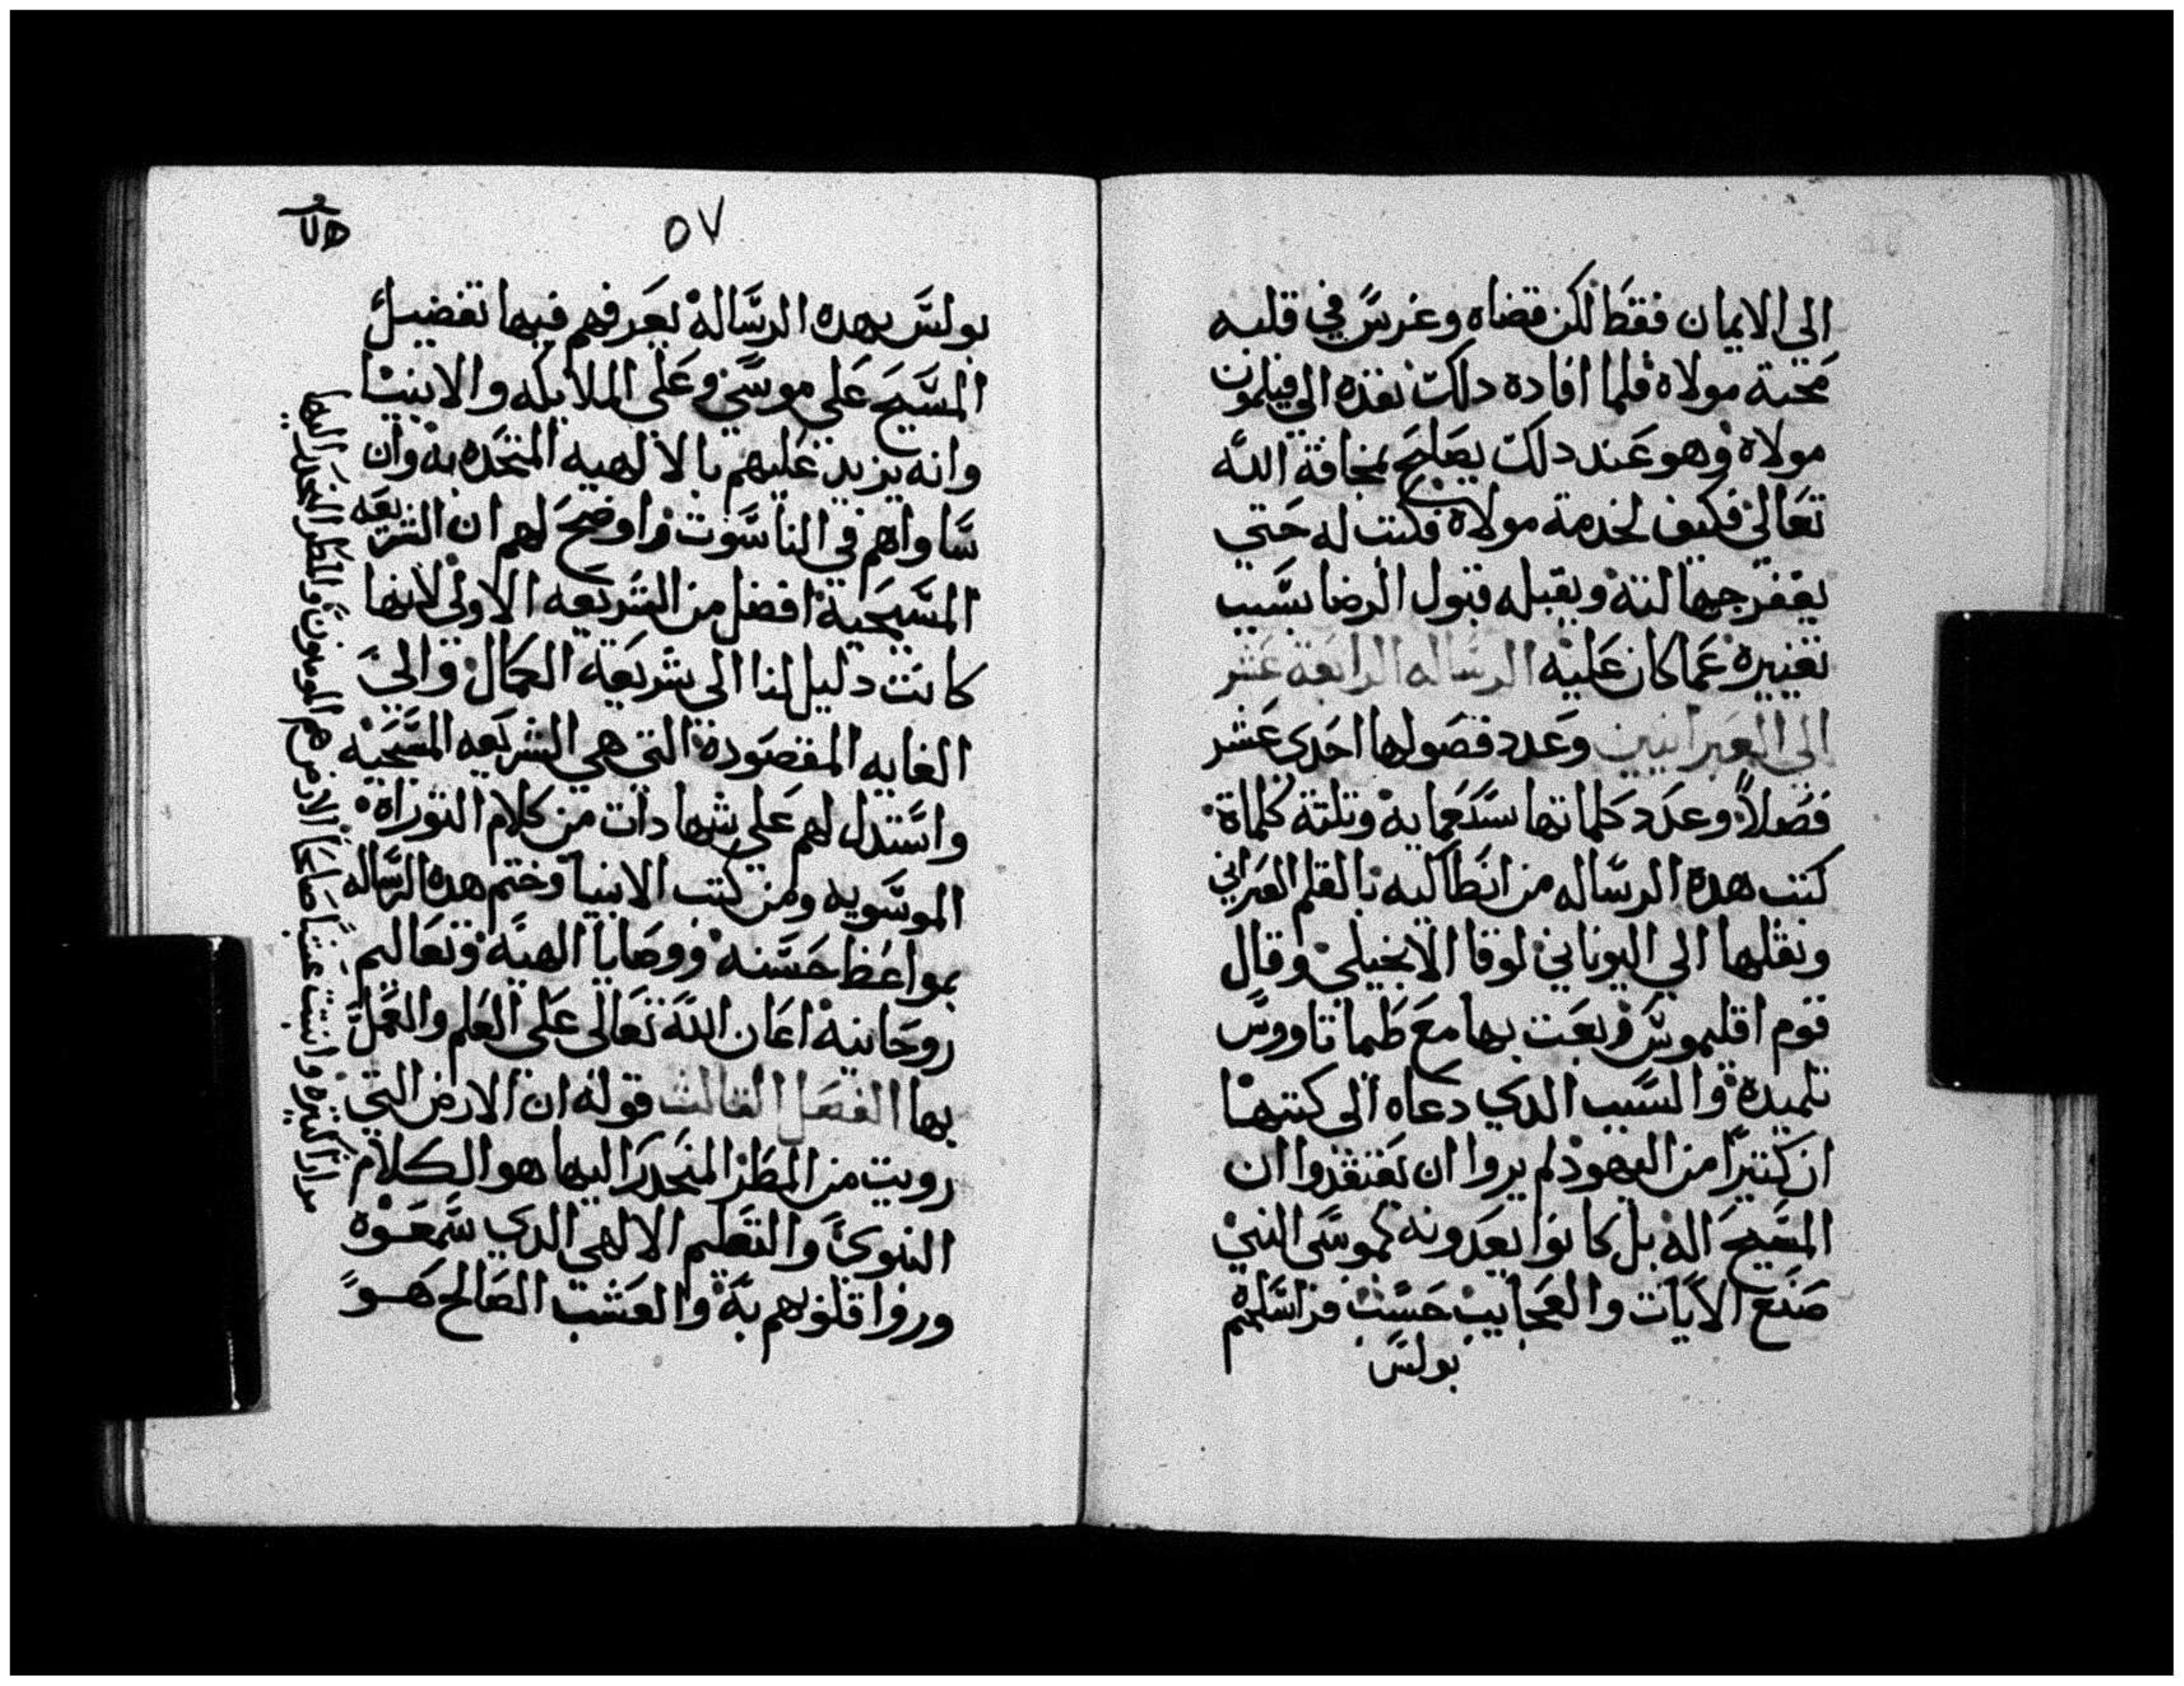 الى الايمان فقط لكن قضاه وغرس في قلبه
محبة مولاه فلما افاده دلك نفده الى فيلمون
مولاه وهو عند دلك يصالح بمخافة الله
تعالى فكيف لخدمة مولاه فكتب له حتي
يغفر جهالته ويقبله قبول الرضا بسبب
تغييره عما كان عليه الرساله الرابعة عشر
الى العبرانيين وعدد فصولها احدى عشر
فصلاً وعدد كلماتها وتلتة كلماة
كتب هده الرساله من انطاكيه بالقلم العبراني
ونقلها الي اليوناني لوقا الانجيلي وقال
قوم اقليموس وبعت بها مع طيماتاووس
تلميده والسبب الدي دعاه الى كتبها
ان كتيرًا من اليهود لم يروا ان يعتقدوا ان
المسيح اله بل كانوا يعدونه كموسى النبي
صنع الايات والعجايب حسب فراسلهم
بولس
٥٧
بولس بهده الرسالة يعرفهم فيها تفضيل
المسيح على موسى وعلى الملايكه والانبيا
وانه يزيد عليهم بالالهيه المتحده به وان
ساواهم في الناسوت واوضح لهم ان الشريعه
المسيحية افضل من الشريعه الاولى لانها
كانت دليل لنا الى شريعة الكمال والى
الغايه المقصودة التي هي الشريعه المسيحيه
واستدل لهم على شهادات من كلام التوراة
الموسويه ومن كتب الانبيا وختم هده الرساله
بمواعظ حسنه ووصايا الهية وتعاليم
روحانية اعان الله تعالى على العلم والعمل
بها الفصل التالث قوله ان الارض التي
رويت من المطر المنحدر اليها هو الكلام
النبوى والتعليم الالهي الدي سمعوه
ورووا قلوبهم به والعشب الصالح هو
مرارًا كتيره وانبتت عشبًا صالحًا الارض هم المومنون والمطر النحدر اليها